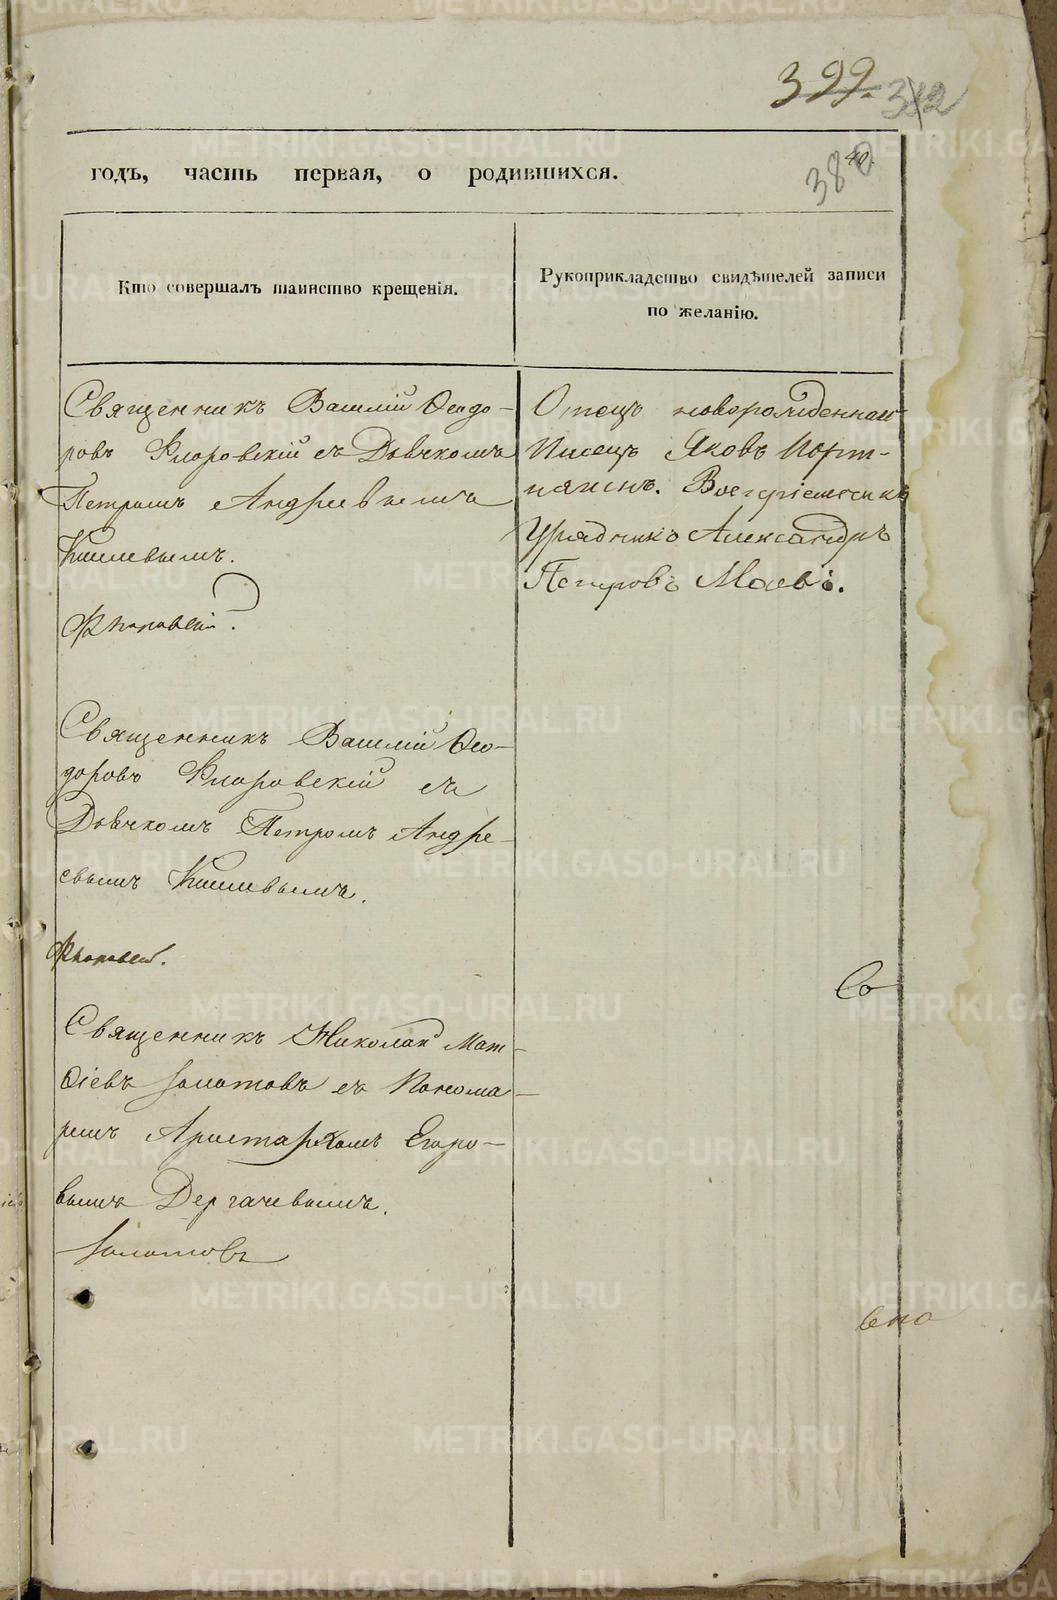 399.
312
380
40.
годъ, часть первая, о родившихся.
Кто совершалъ таинство крещенія.
Рукоприкладство свидѣтелей записи
по желанію.
Священникъ Василій Ѳеодо-
ровъ Флоровскій съ Дьячкомъ
Петромъ Андреевымъ
Киселевымъ.
Флоровскій.
Отецъ новорожденнай
Писецъ Яковъ Порт-
нягинъ. Воспріемникъ
Урядникъ Александръ
Петровъ Маевъ.
Священникъ Василій Ѳео-
доровъ Флоровскій съ
Дьячкомъ Петромъ Андре-
евымъ Киселевымъ.
Флоровскій.
Со
Священникъ Николай Мат-
ѳіевъ Золотовъ съ Понома-
ремъ Аристархомъ Егоро-
вымъ Дергачевымъ.
Золотовъ
вно
METRIKI.GASO-URAL.RU